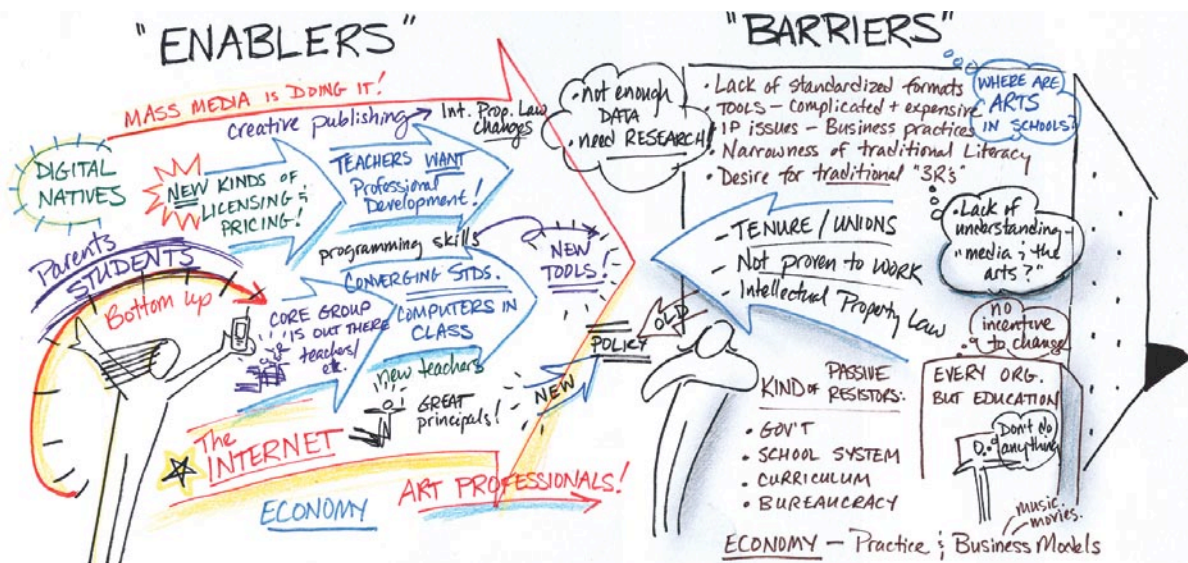 "ENABLERS"
MASS MEDIA IS DOING IT!
creative publishing
Int. Prop. Law
changes
DIGITAL
NATIVES
NEW KINDS OF
LICENSING &
PRICING!
TEACHERS WANT
Professional
Development!
programming skills
NEW
TOOLS!
Parents
STUDENTS
Bottom up
CORE GROUP
IS OUT THERE
teachers/
etc.
CONVERGING STDS.
COMPUTERS IN
CLASS
new teachers
GREAT
principals!
NEW
POLICY
OLD
The
INTERNET
ECONOMY
ART PROFESSIONALS!
"BARRIERS"
• not enough
DATA
• need RESEARCH!
• Lack of standardized formats
• TOOLS – complicated + expensive
• IP issues – Business practices
• Narrowness of traditional Literacy
• Desire for traditional "3R's"
WHERE ARE
ARTS
IN SCHOOLS?
– TENURE / UNIONS
– Not proven to WORK
– Intellectual Property Law
• Lack of
understanding –
"media & the
arts?"
no
incentive
to change
KIND OF PASSIVE
RESISTORS:
• GOV'T
• SCHOOL SYSTEM
• CURRICULUM
• BUREAUCRACY
EVERY ORG.
BUT EDUCATION
Don't do
anything
music
movies.
ECONOMY – Practice & Business Models